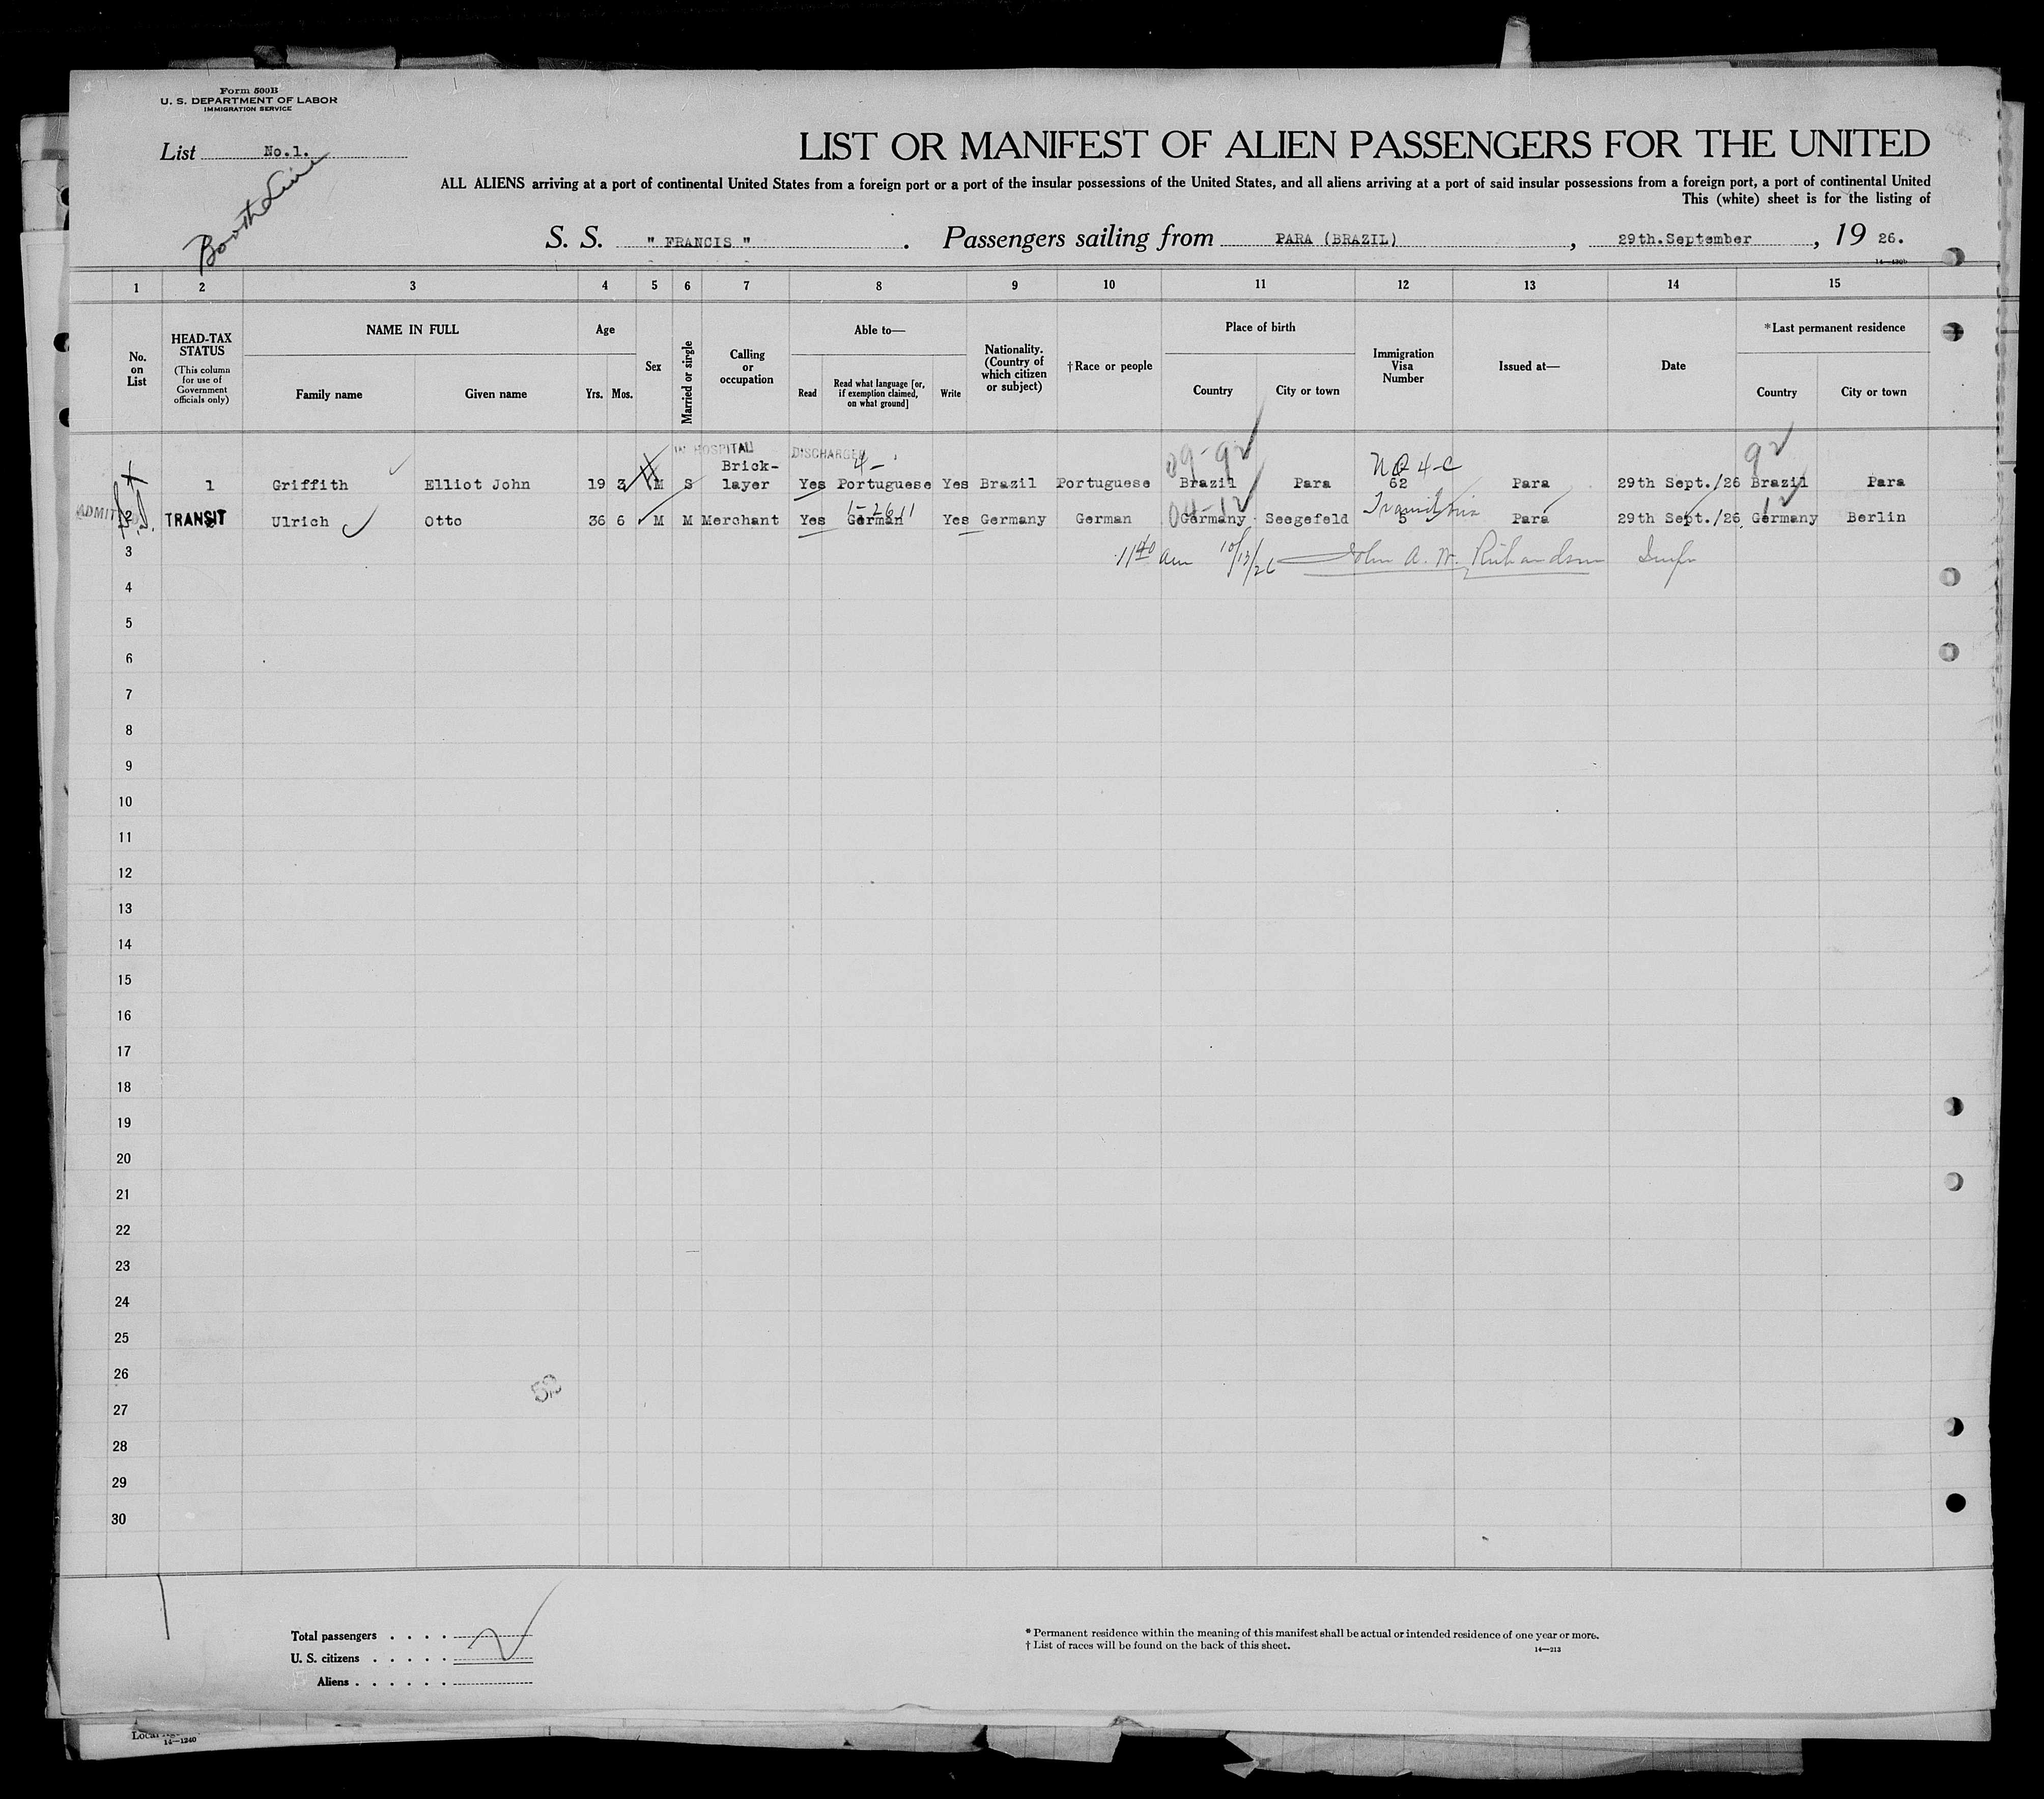 Form 500B
U. S. DEPARTMENT OF LABOR
IMMIGRATION SERVICE
List No.1.
Booth Line
LIST OR MANIFEST OF ALIEN PASSENGERS FOR THE UNITED
ALL ALIENS arriving at a port of continental United States from a foreign port or a port of the insular possessions of the United States, and all aliens arriving at a port of said insular possessions from a foreign port, a port of continental United
This (white) sheet is for the listing of
S. S. " FRANCIS " . Passengers sailing from PARA (BRAZIL) , 29th.September , 19 26.
1 2 3 4 5 6 7 8 9 10 11 12 13 14 15
No. on List
HEAD-TAX STATUS
(This column for use of Government officials only)
NAME IN FULL
Family name Given name
Age
Yrs. Mos.
Sex
Married or single
Calling or occupation
Able to—
Read
Read what language [or, if exemption claimed, on what ground]
Write
Nationality. (Country of which citizen or subject)
†Race or people
Place of birth
Country City or town
Immigration Visa Number
Issued at—
Date
*Last permanent residence
Country City or town
IN HOSPITAL DISCHARGED
4- 09-92 NQ 4-C 92
1 Griffith Elliot John 19 3 M S Brick-layer Yes Portuguese Yes Brazil Portuguese Brazil Para 62 Para 29th Sept./26 Brazil Para
ADMITTED
12
2 TRANSIT Ulrich Otto 36 6 M M Merchant Yes German Yes Germany German Germany Seegefeld 5 Para 29th Sept./26 Germany Berlin
3 11 40 am 10/13/26 John A. W. Richardson Insp
4
5
6
7
8
9
10
11
12
13
14
15
16
17
18
19
20
21
22
23
24
25
26
27
28
29
30
Total passengers . . . .
U. S. citizens . . . . .
Aliens . . . . . .
* Permanent residence within the meaning of this manifest shall be actual or intended residence of one year or more.
† List of races will be found on the back of this sheet.
14—213
14—1240